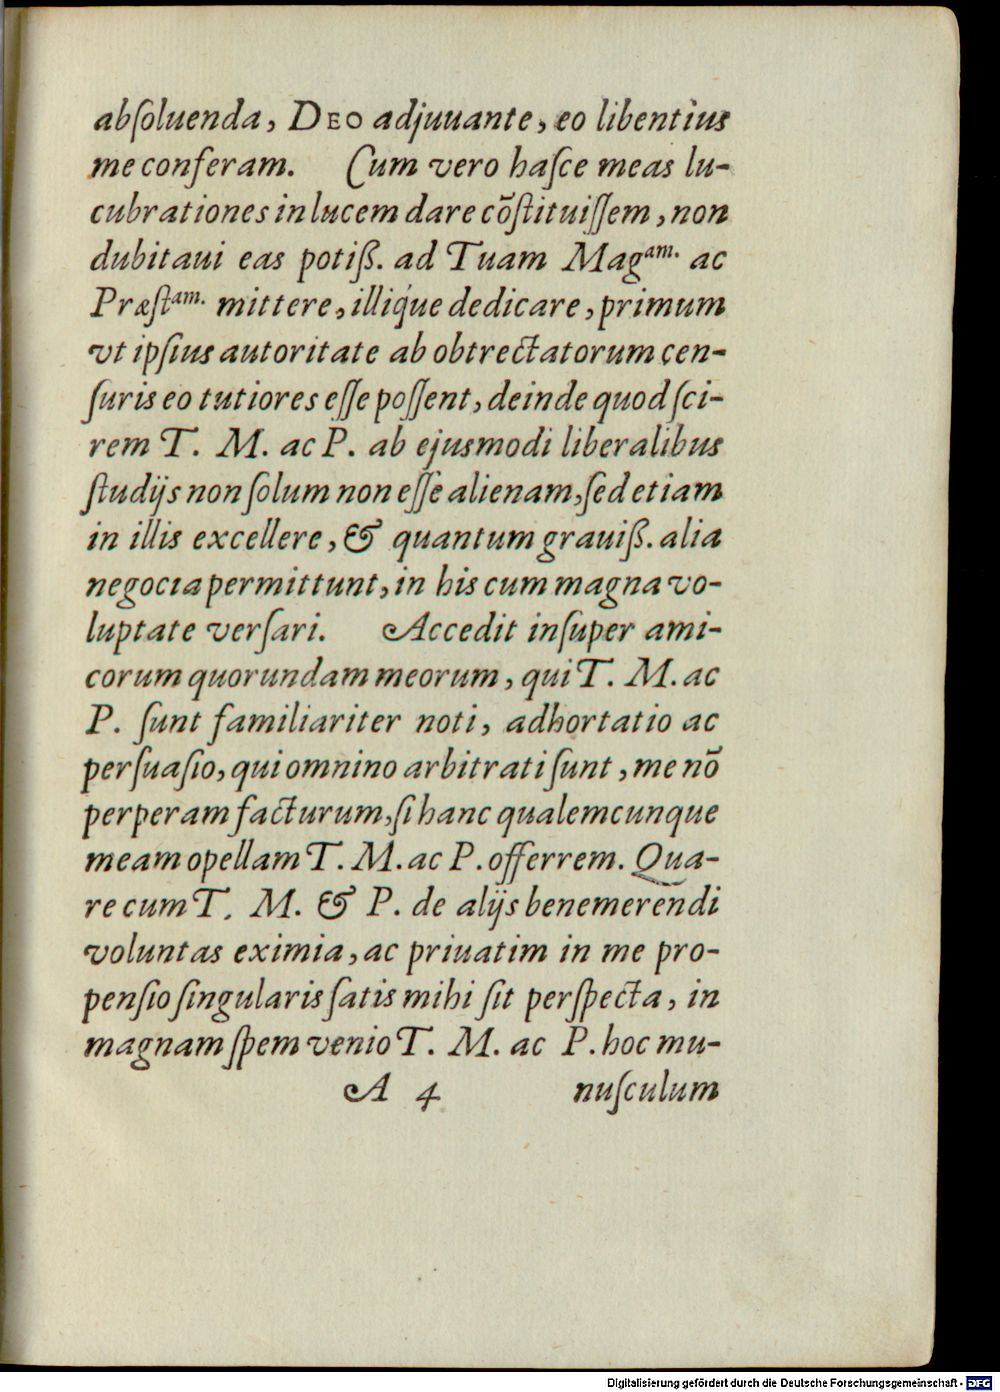 abſoluenda, DEO adjuuante, eo libentìus
me conferam. Cum vero haſce meas lu-
cubrationes in lucem dare cõſtituiſſem, non
dubitaui eas potiß. ad Tuam Magᵃᵐ· ac
Præſtᵃᵐ· mittere, illiq́ue dedicare, primum
vt ipſius autoritate ab obtrectatorum cen-
ſuris eo tutiores eſſe poſſent, deinde quod ſci-
rem T. M. ac P. ab ejusmodi liberalibus
ſtudijs non ſolum non eſſe alienam, ſed etiam
in illis excellere, & quantum grauiß. alia
negocia permittunt, in his cum magna vo-
luptate verſari. Accedit inſuper ami-
corum quorundam meorum, qui T. M. ac
P. ſunt familiariter noti, adhortatio ac
perſuaſio, qui omnino arbitrati ſunt, me nõ
perperam facturum, ſi hanc qualemcunque
meam opellam T. M. ac P. offerrem. Qua-
re cum T. M. & P. de alijs benemerendi
voluntas eximia, ac priuatim in me pro-
penſio ſingularis ſatis mihi ſit perſpecta, in
magnam ſpem venio T. M. ac P. hoc mu-
A 4 nuſculum
Digitalisierung gefördert durch die Deutsche Forschungsgemeinschaft - DFG